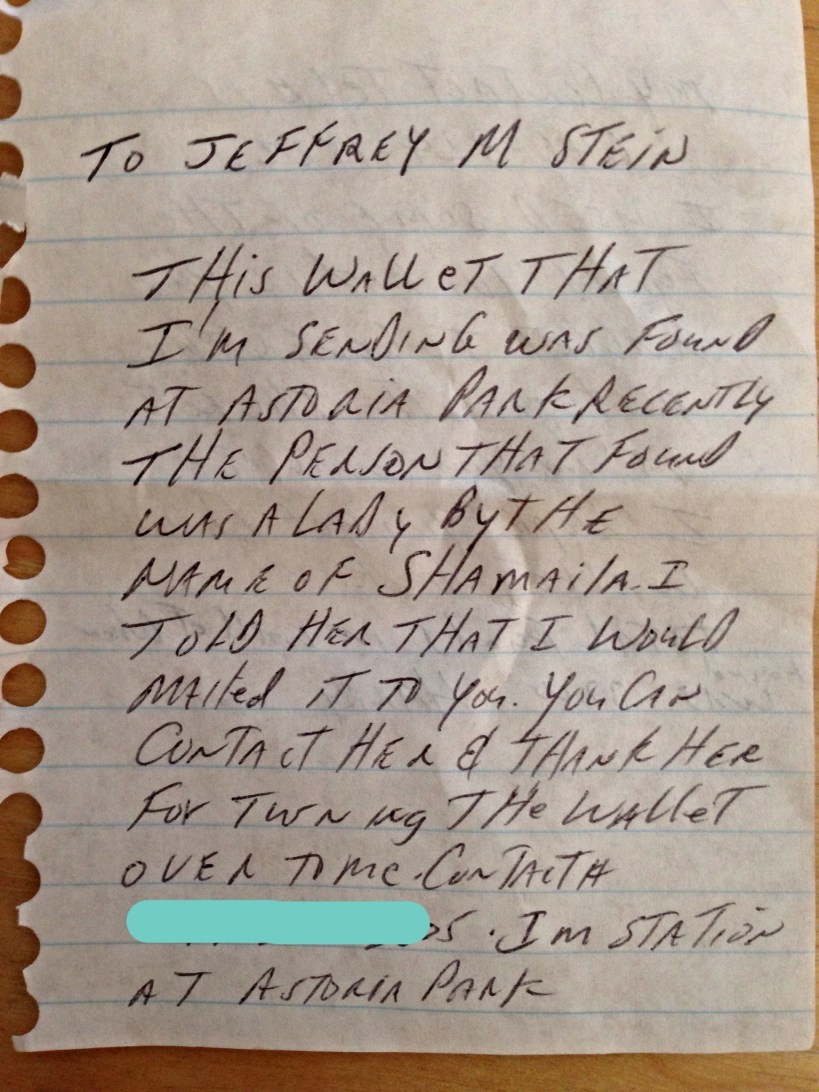 TO JEFFREY M STEIN
THIS WALLET THAT
I'M SENDING WAS FOUND
AT ASTORIA PARK RECENTLY
THE PERSON THAT FOUND
WAS A LADY BY THE
NAME OF SHAMAILA. I
TOLD HER THAT I WOULD
MAILED IT TO YOU. YOU CAN
CONTACT HER & THANK HER
FOR TURNING THE WALLET
OVER TO ME. CONTACT#
05. IM STATION
AT ASTORIA PARK